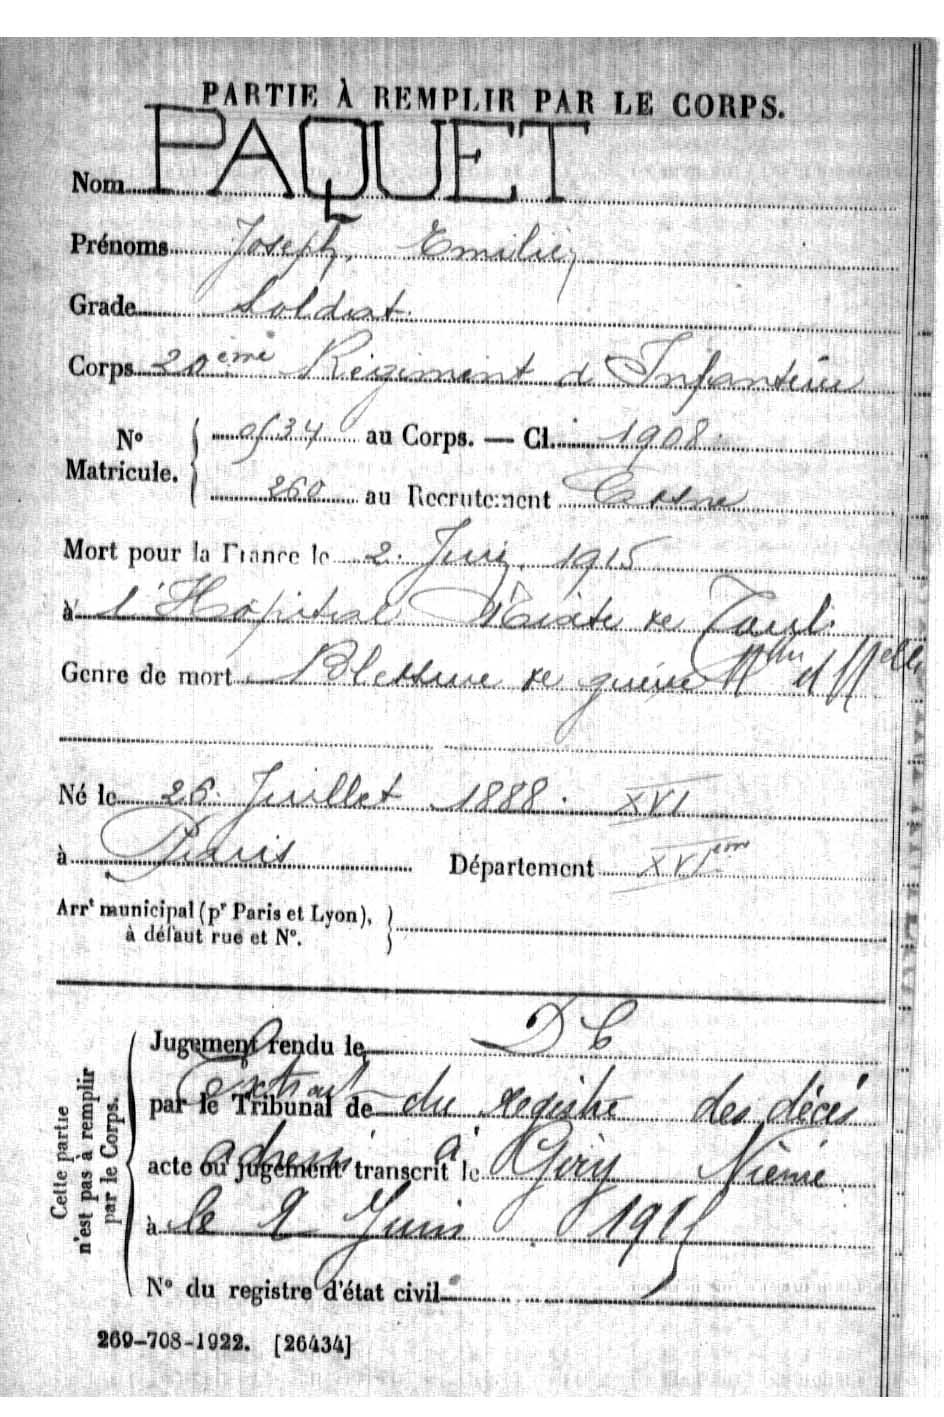 PARTIE À REMPLIR PAR LE CORPS.
Nom PAQUET
Prénoms Joseph, Emilien
Grade Soldat.
Corps 20ème Régiment d'Infanterie
No Matricule. 0534 au Corps. — Cl. 1908
260 au Recrutement Cosne
Mort pour la France le 2. Juin. 1915
à l'Hôpital Mixte de Toul.
Genre de mort Blessure de guerre
Né le 26 Juillet 1888. XVI
à Paris Département XVIème
Arrt municipal (pr Paris et Lyon),
à défaut rue et No.
Cette partie n'est pas à remplir par le Corps.
Jugement rendu le D C
Extrait
par le Tribunal de du registre des décès
adressé à
acte ou jugement transcrit le Giry Nièvre
à le 2 Juin 1915
No du registre d'état civil
269-708-1922. [26434]